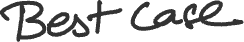 Best Case